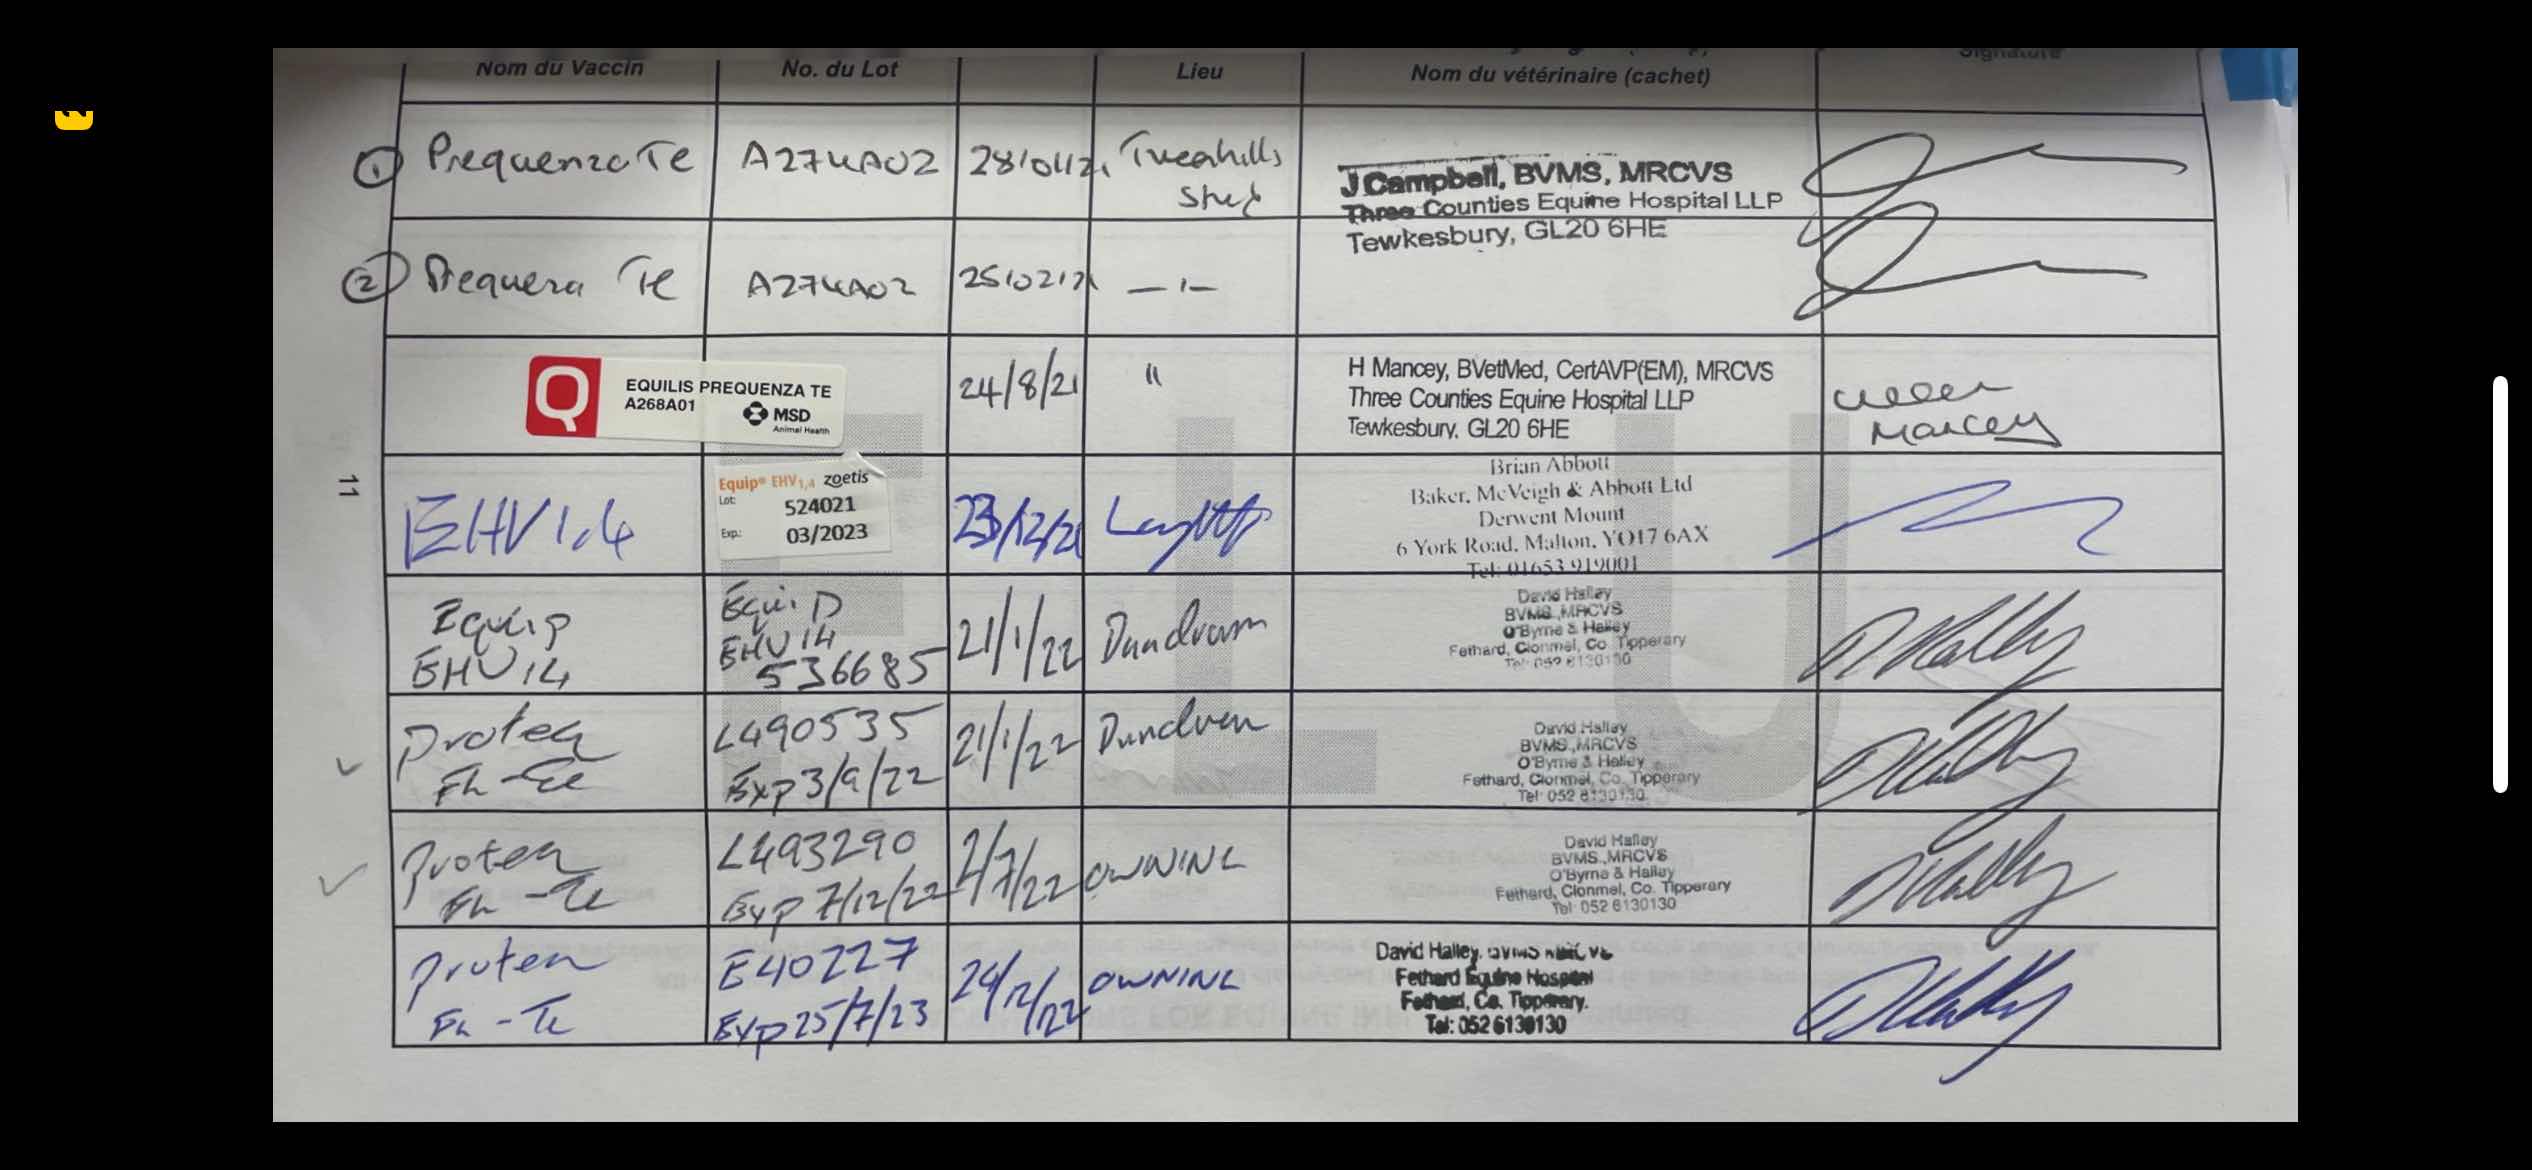 Nom du Vaccin No. du Lot Lieu Nom du vétérinaire (cachet) Signature
① Prequenza Te A274A02 28/01/21 Tweenhills Stud
J Campbell, BVMS, MRCVS
Three Counties Equine Hospital LLP
Tewkesbury, GL20 6HE
② Prequenza Te A274A02 25/02/21 — ı —
EQUILIS PREQUENZA TE
A268A01
MSD
Animal Health
24/8/21 "
H Mancey, BVetMed, CertAVP(EM), MRCVS
Three Counties Equine Hospital LLP
Tewkesbury, GL20 6HE
Mancey
11
EHV 1,4
Equip® EHV1,4 zoetis
Lot: 524021
Exp.: 03/2023
23/12/21
Brian Abbott
Baker, McVeigh & Abbott Ltd
Derwent Mount
6 York Road, Malton, YO17 6AX
Tel: 01653 919001
Equip
EHV 14
Equip
EHV 14
536685
21/1/22 Dundrum
David Halley
BVMS.,MRCVS
O'Byrne & Halley
Fethard, Clonmel, Co Tipperary
Tel: 052 6130130
D Halley
Proteq
Flu-Te
L490535
Exp 3/9/22
21/1/22 Dundrum
David Halley
BVMS.,MRCVS
O'Byrne & Halley
Fethard, Clonmel, Co. Tipperary
Tel: 052 6130130
D Halley
Proteq
Flu-Te
L493290
Exp 7/12/22
2/7/22 OWNING
David Halley
BVMS.,MRCVS
O'Byrne & Halley
Fethard, Clonmel, Co. Tipperary
Tel: 052 6130130
D Halley
Proteq
Flu-Te
E40227
Exp 25/7/23
24/12/22 OWNING
David Halley, BVMS MRCVS
Fethard Equine Hospital
Fethard, Co. Tipperary.
Tel: 052 6130130
D Halley